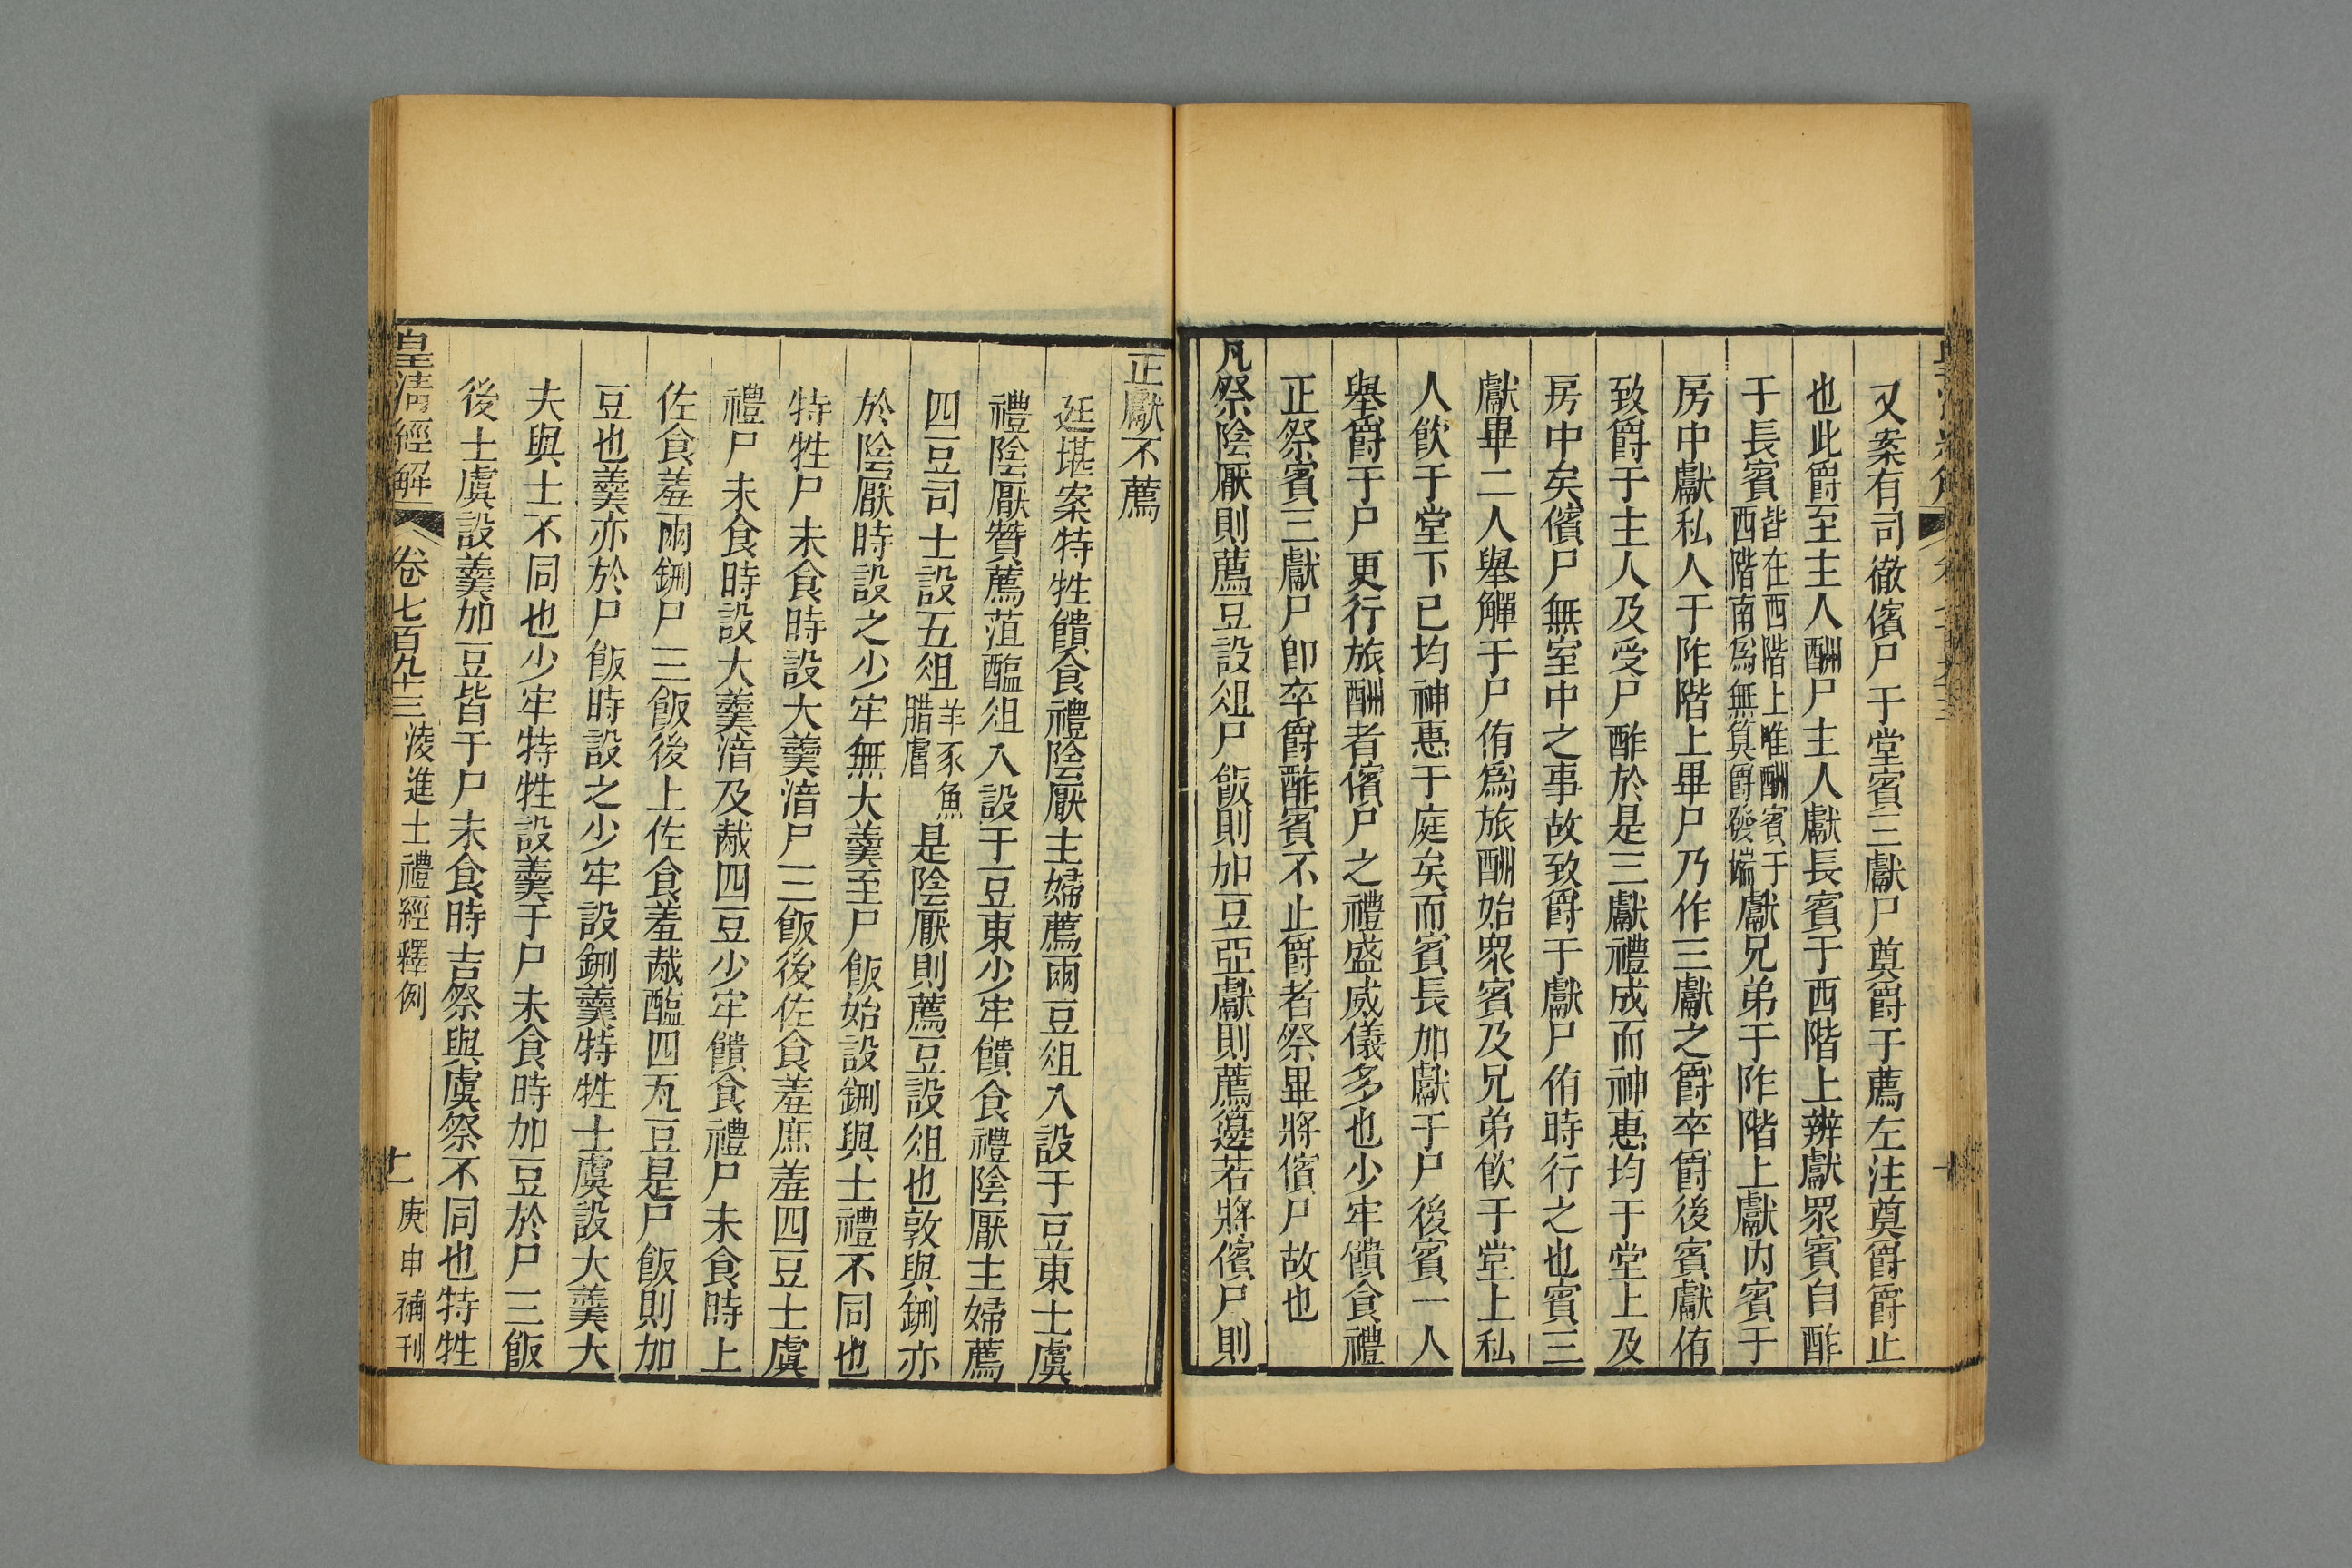 又案有司徹儐尸于堂賓三獻尸奠爵于薦左注奠爵爵止
也此爵至主人酬尸主人獻長賓于西階上辨獻眾賓自酢
于長賓皆在西階上唯酬賓于西階南爲無筭爵發端獻兄弟于阼階上獻內賓于
房中獻私人于阼階上畢尸乃作三獻之爵卒爵後賓獻侑
致爵于主人及受尸酢於是三獻禮成而神惠均于堂上及
房中矣儐尸無室中之事故致爵于獻尸侑時行之也賓三
獻畢二人舉觶于尸侑爲旅酬始眾賓及兄弟飲于堂上私
人飲于堂下已均神惠于庭矣而賓長加獻于尸後賓一人
舉爵于尸更行旅酬者儐尸之禮盛威儀多也少牢饋食禮
正祭賓三獻尸卽卒爵酢賓不止爵者祭畢將儐尸故也
凡祭陰厭則薦豆設俎尸飯則加豆亞獻則薦籩若將儐尸則
正獻不薦
廷堪案特牲饋食禮陰厭主婦薦兩豆俎入設于豆東士虞
禮陰厭贊薦菹醢俎入設于豆東少牢饋食禮陰厭主婦薦
四豆司士設五俎羊豕魚腊膚是陰厭則薦豆設俎也敦與鉶亦
於陰厭時設之少牢無大羹至尸飯始設鉶與士禮不同也
特牲尸未食時設大羹湆尸三飯後佐食羞庶羞四豆士虞
禮尸未食時設大羹湆及胾四豆少牢饋食禮尸未食時上
佐食羞兩鉶尸三飯後上佐食羞胾醢四瓦豆是尸飯則加
豆也羹亦於尸飯時設之少牢設鉶羹特牲士虞設大羹大
夫與士不同也少牢特牲設羹于尸未食時加豆於尸三飯
後士虞設羹加豆皆于尸未食時吉祭與虞祭不同也特牲
皇清經解 卷七百九十三 淩進士禮經釋例 十一 庚申補刊